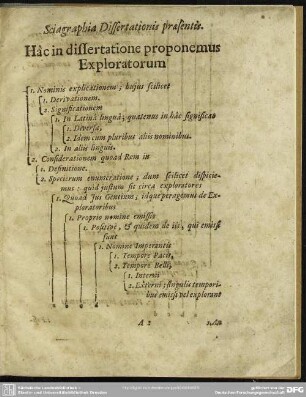 Sciagraphia Dissertationis præsentis.
Hâc in dissertatione proponemus
Exploratorum
1. Nominis explicationem; hujus scilicet
1. Derivationem.
2. Significationem
1. In Latinâ linguâ; quatenus in hâc significat
1. Diversa,
2. Idem cum pluribus aliis nominibus.
2. In aliis linguis.
2. Considerationem quoad Rem in
1. Definitione.
2. Specierum enumeratione; dum scilicet dispicie-
mus: quid justum sit circa exploratores
1. Quoad Jus Gentium; idque peragimus de Ex-
ploratoribus
1. Proprio nomine emissis
1. Positivè, & quidem de iis, qui emissi
sunt
1. Nomine Imperantis
1. Tempore Pacis,
2. Tempore Belli,
1. Interni
2. Externi; singulis tempori-
bus emissi vel explorant
A 2